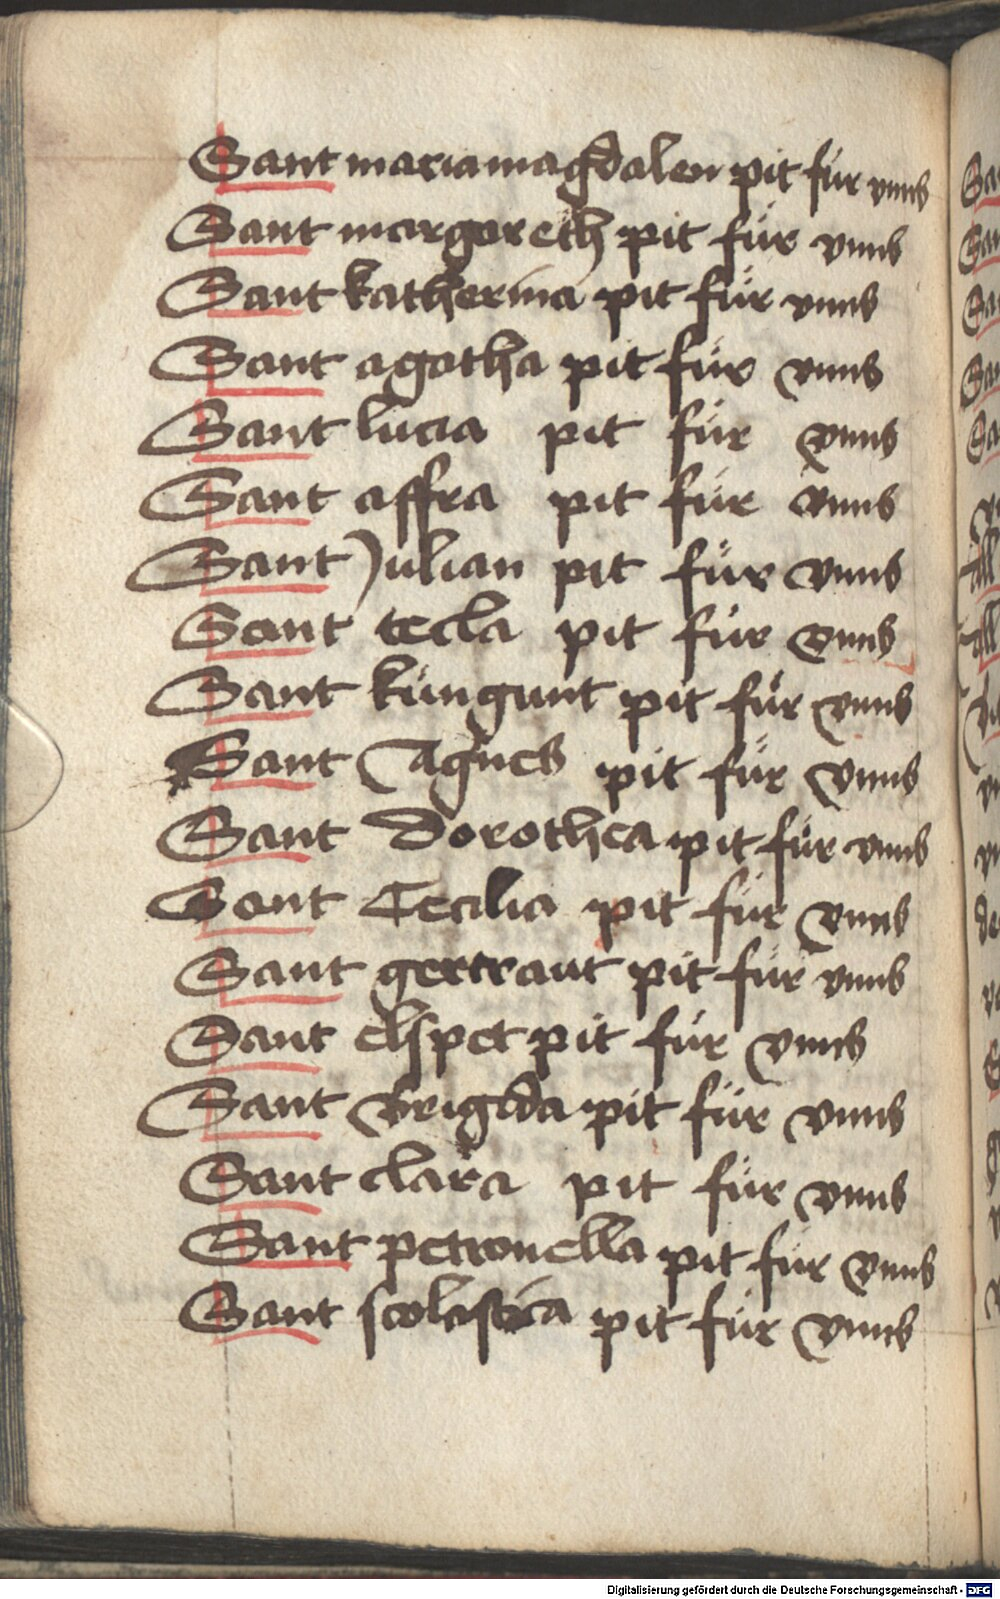 Sant maria magdalen pit für vnns
Sant margareth pit für vnns
Sant katherina pit für vnns
Sant agatha pit für vnns
Sant lucia pit für vnns
Sant affra pit für vnns
Sant Julian pit für vnns
Sant tecla pit für vnns
Sant küngunt pit für vnns
Sant Agnes pit für vnns
Sant Dorothea pit für vnns
Sant Cecilia pit für vnns
Sant gertraut pit für vnns
Sant elspet pit für vnns
Sant Brigida pit für vnns
Sant clara pit für vnns
Sant petronella pit für vnns
Sant scolastica pit für vnns
Digitalisierung gefördert durch die Deutsche Forschungsgemeinschaft - DFG